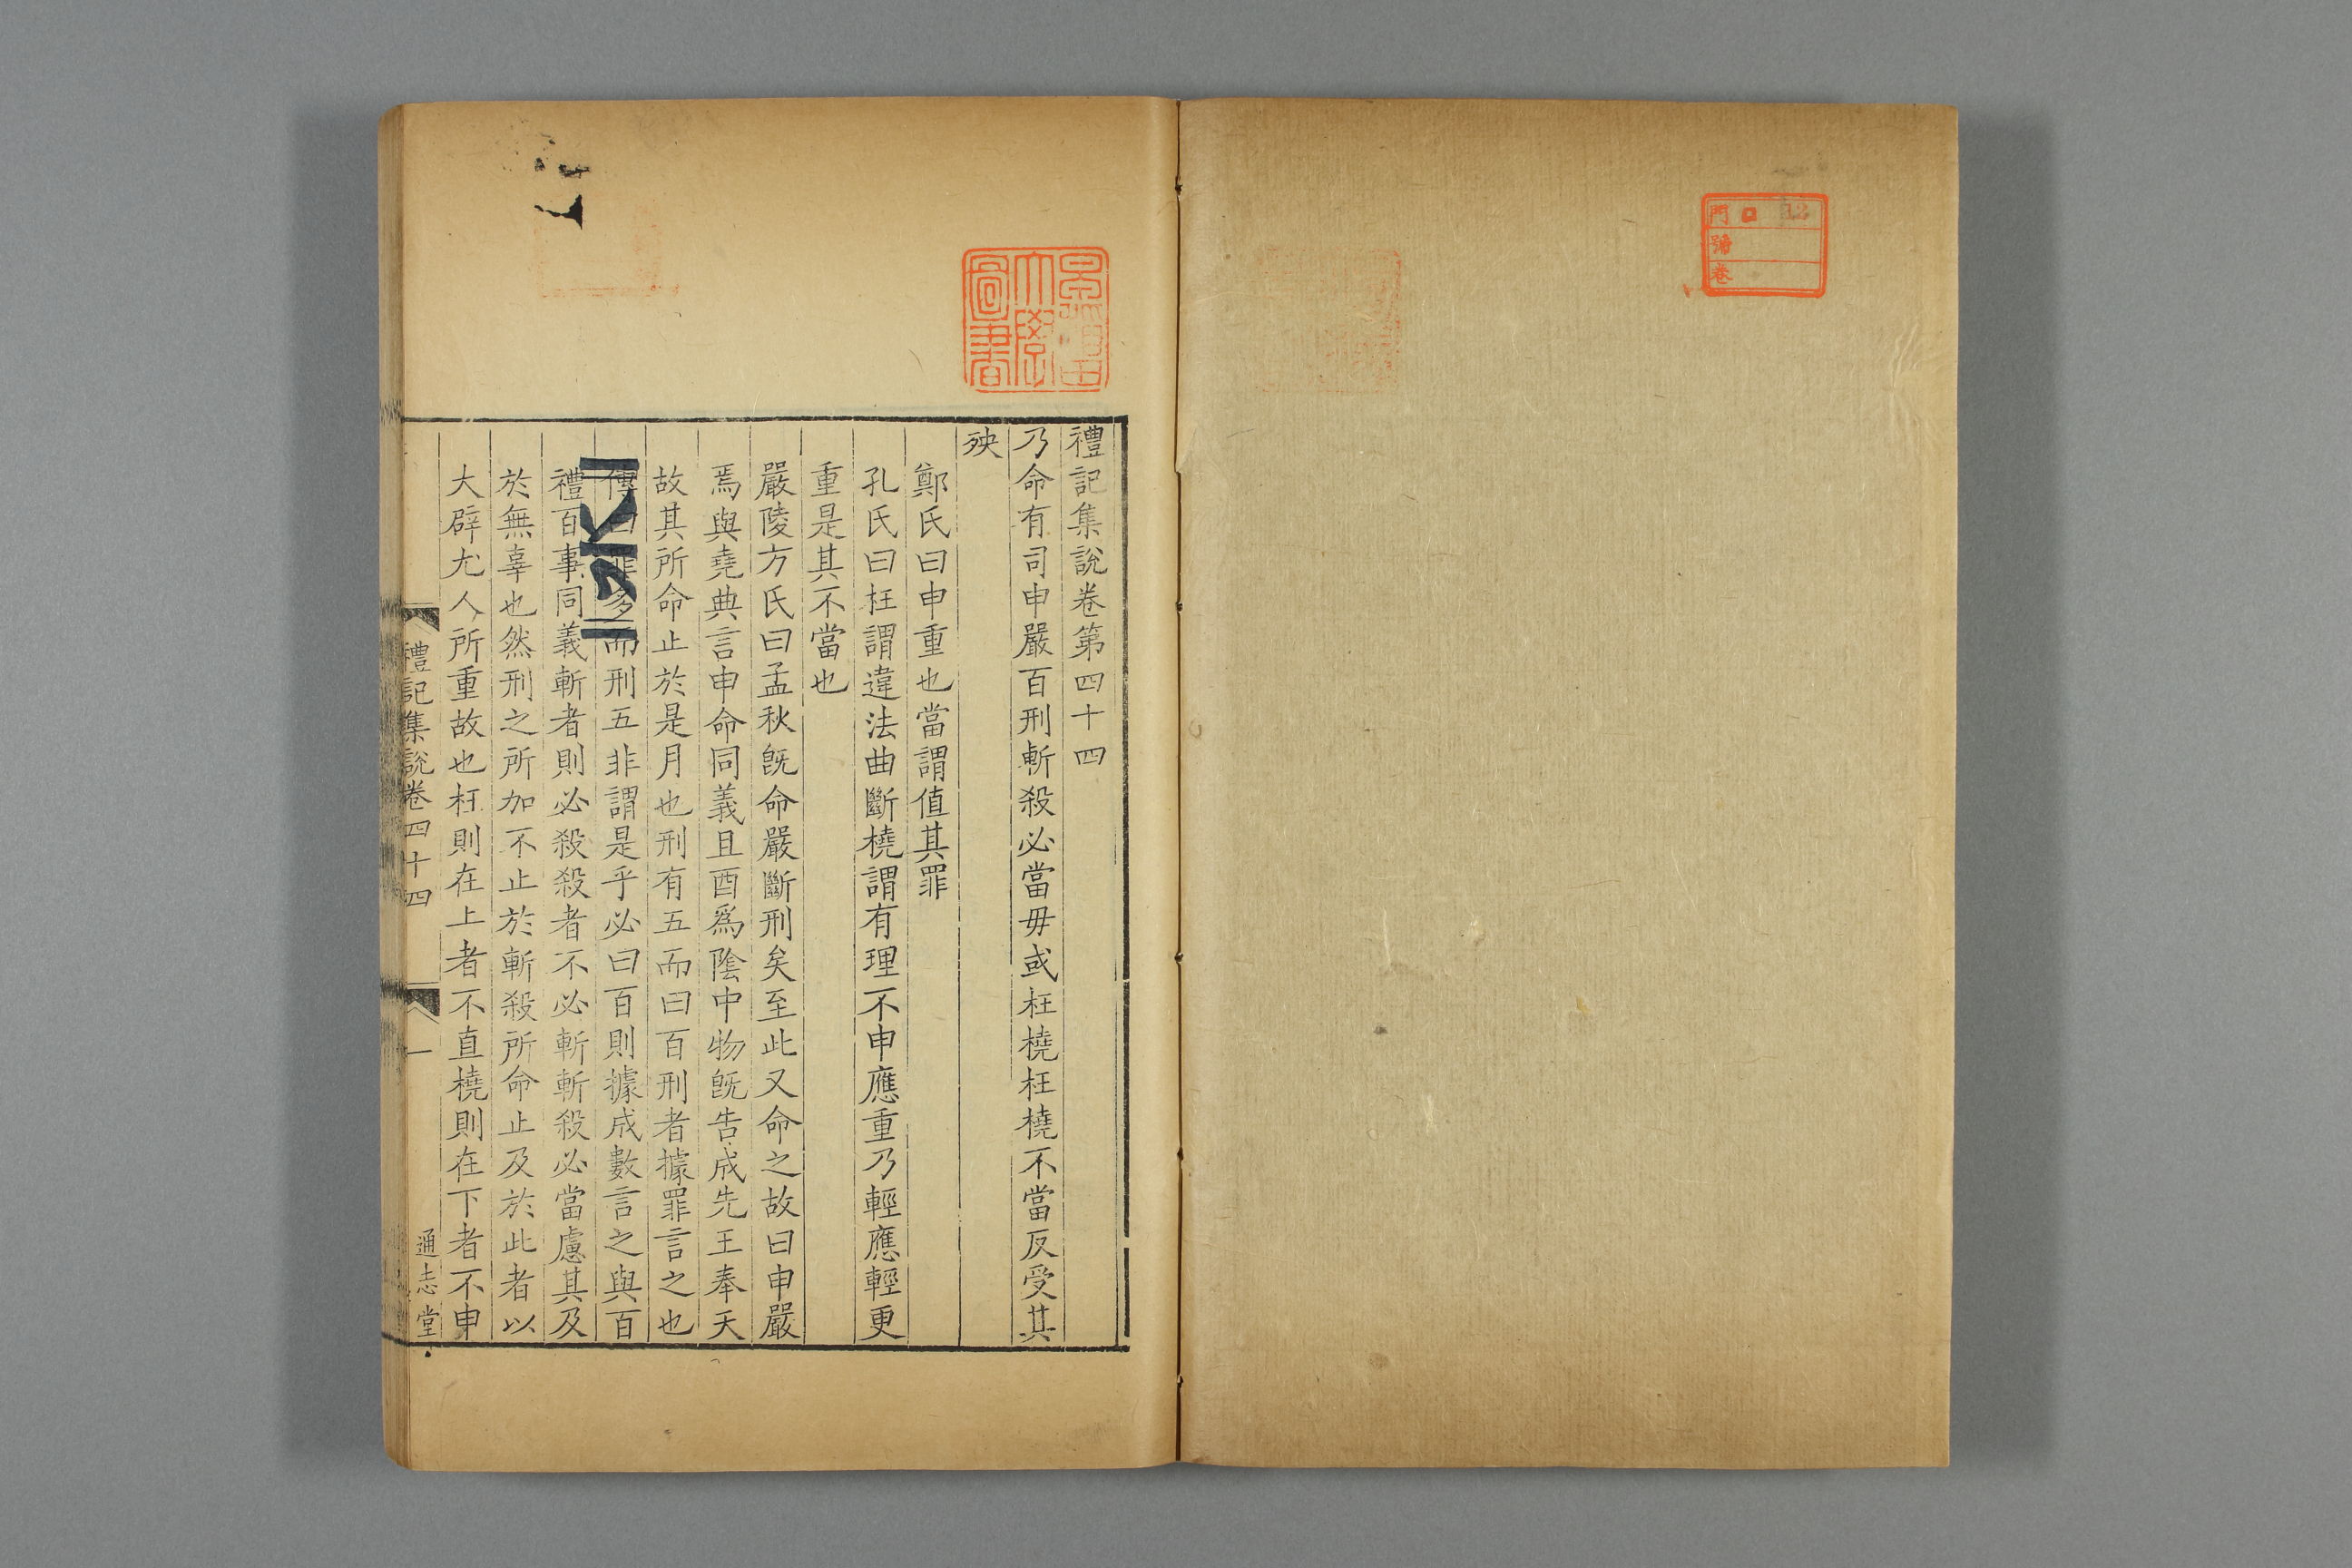 門 口 12
號
卷
早稲田
大學
圖書
禮記集說卷第四十四
乃命有司申嚴百刑斬殺必當毋或枉橈枉橈不當反受其
殃
鄭氏曰申重也當謂值其罪
孔氏曰枉謂違法曲斷橈謂有理不申應重乃輕應輕更
重是其不當也
嚴陵方氏曰孟秋旣命嚴斷刑矣至此又命之故曰申嚴
焉與堯典言申命同義且酉爲陰中物旣告成先王奉天
故其所命止於是月也刑有五而曰百刑者據罪言之也
傳曰罪多而刑五非謂是乎必曰百則據成數言之與百
禮百事同義斬者則必殺殺者不必斬斬殺必當慮其及
於無辜也然刑之所加不止於斬殺所命止及於此者以
大辟尤人所重故也枉則在上者不直橈則在下者不申
禮記集說卷四十四 一 通志堂